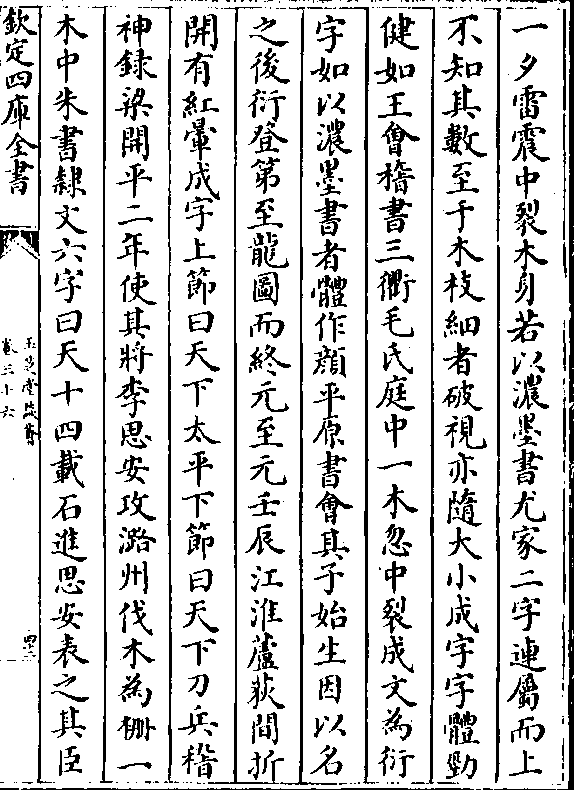 一夕雷震中裂木身若以濃墨書尤家二字連屬而上
不知其數至于木枝細者破視亦隨大小成字字體勁
健如王會稽書三衢毛氏庭中一木忽中裂成文為衍
字如以濃墨書者體作顔平原書會其子始生因以名
之後衍登第至龍圖而終元至元壬辰江淮蘆荻間折
開有紅暈成字上節曰天下太平下節曰天下刀兵稽
神録梁開平二年使其將李思安攻潞州伐木為栅一
木中朱書隷文六字曰天十四載石進思安表之其臣
欽定四庫全書
玉芝堂談薈
卷二十六
四十三